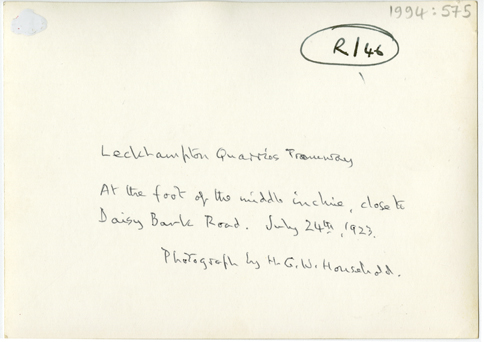 1994:575
R/46
Leckhampton Quarries Tramway
At the foot of the middle incline, close to
Daisy Bank Road. July 24th, 1923.
Photograph by H. G. W. Household.